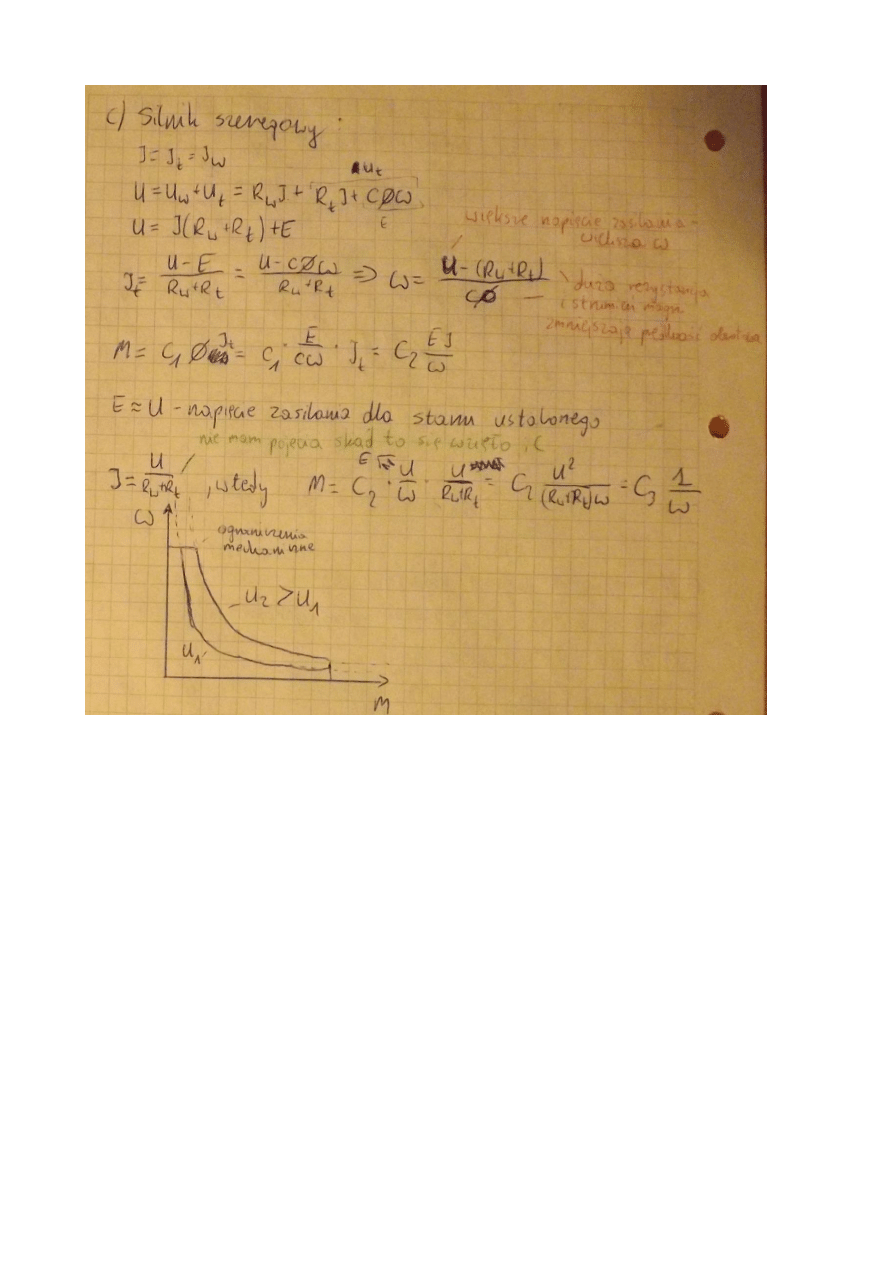 c) Silnik szeregowy
J = J_t = J_w
U_t
U = U_w + U_t = R_w J + R_t J + CØω
E
U = J(R_w + R_t) + E
większe napięcie zasilania -
większa ω
J_t = (U - E)/(R_w + R_t) = (U - CØω)/(R_w + R_t) ⇒ ω = (U - (R_w + R_t))/(CØ)
duża rezystancja
i strumień magn
zmniejszają prędkość
M = C_1 Ø J_t = C_1 · E/(cω) · J_t = C_2 (E J)/ω
E ≈ U - napięcie zasilania dla stanu ustalonego
nie mam pojęcia skąd to się wzięło :(
J = U/(R_w + R_t), wtedy M = C_2 · U/ω · U/(R_w + R_t) = C_2 U²/((R_w + R_t)ω) = C_3 1/ω
E
ω
ograniczenia
mechaniczne
U_2 > U_1
U_1
M